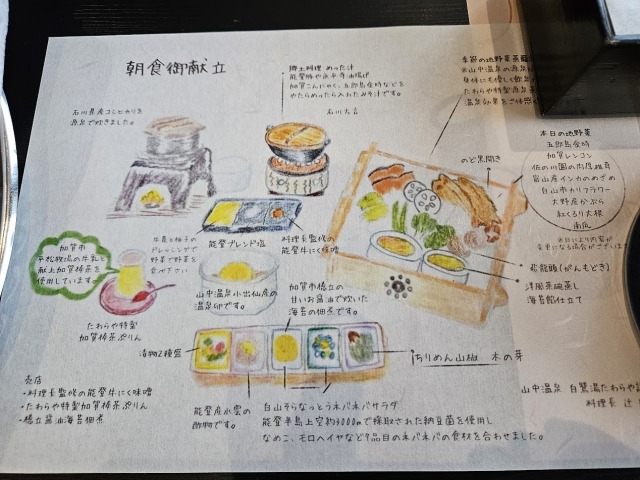 朝食御献立
石川県産コシヒカリを
源泉で炊きました。
郷土料理 めった汁
能登豚や永平寺油揚げ
加賀こんにゃく、五郎島金時などを
やたらめったら入れたみそ汁です。
季節の地野菜蒸籠
※山中温泉の源泉
身体にも優しく飲泉
たわらや特製源泉蒸
温泉卵黄とご体感
のど黒開き
本日の地野菜
五郎島金時
加賀レンコン
佐の川園の肉厚椎茸
富山産インカのめざめ
白山市カリフラワー
大野産かぶら
紅くるり大根
南瓜
※日により内容が
変更になる場合がございます
飛龍頭(がんもどき)
洋風茶碗蒸し
海苔餡仕立て
能登ブレンド塩
料理長監修の
能登牛にく味噌
ドレッシングで
野菜で野菜を
食べ下さい
加賀市
平松牧場の牛乳と
献上加賀棒茶を
使用しています。
たわらや特製
加賀棒茶ぷりん
山中温泉小出仙産の
温泉卵です。
加賀市橋立の
甘いお醤油で炊いた
海苔の佃煮です。
漬物2種盛
ちりめん山椒 木の芽
能登産水雲の
酢物です。
白山そらなっとうネバネバサラダ
能登半島上空約3000mで採取された納豆菌を使用し
なめこ、モロヘイヤなど7品目のネバネバの食材を合わせました。
売店
・料理長監修の能登牛にく味噌
・たわらや特製加賀棒茶ぷりん
・橋立醤油海苔佃煮
山中温泉 白鷺湯たわらや
料理長 辻